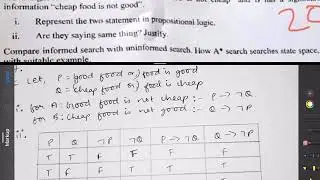 information "cheap food is not good".
i. Represent the two statement in propositional logic.
ii. Are they saying same thing? Justify.
Compare informed search with uninformed search. How A* search searches state space,
with suitable example.
i. Let, P = Good food or) food is good
Q = cheap food or) food is cheap
for A: Good food is not cheap :- P → ¬Q
for B: Cheap food is not good :- Q → ¬P
ii.
P Q ¬P ¬Q P → ¬Q Q → ¬P
T T F F F F
T F F T T
Markup